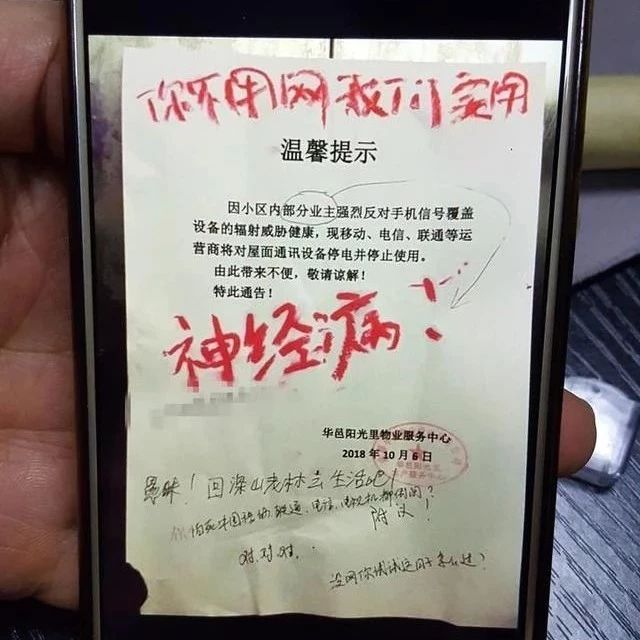 你不用网我们要用
温馨提示
因小区内部分业主强烈反对手机信号覆盖
设备的辐射威胁健康，现移动、电信、联通等运
营商将对屋面通讯设备停电并停止使用。
由此带来不便，敬请谅解！
特此通告！
神经病！！
华邑阳光里物业服务中心
2018年10月6日
愚昧！回深山老林去生活吧！
附议！
对.对.对.